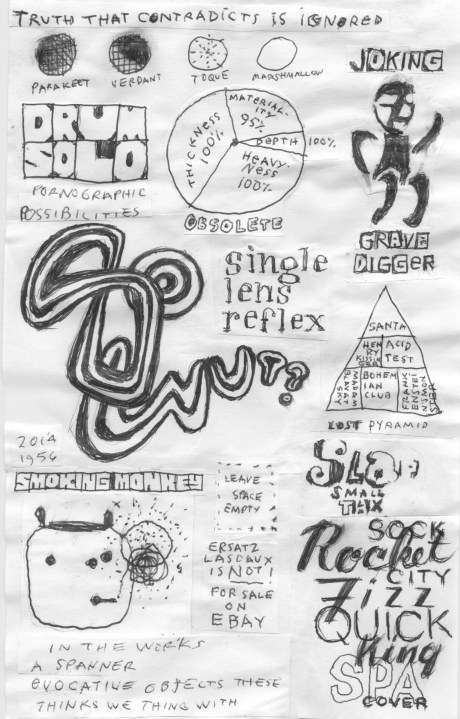 TRUTH THAT CONTRADICTS IS IGNORED
PARAKEET
VERDANT
TOQUE
MARSHMALLOW
JOKING
DRUM
SOLO
PORNOGRAPHIC
POSSIBILITIES
MATERIAL-
ITY
95%
DEPTH 100%
HEAVY-
NESS
100%
THICKNESS
100%
OBSOLETE
GRAVE
DIGGER
single
lens
reflex
SO
WUT?
2014
1956
SANTA
HEN
RY
KISSIN
GER
ACID
TEST
MADAM
BLAVAT
SKY
BOHEM
IAN
CLUB
FRANK
ENSTEI
NSMON
STER
LOST PYRAMID
SMOKING MONKEY
LEAVE
SPACE
EMPTY
SLO
SMALL
TAX
ERSATZ
LASCAUX
IS NOT!
FOR SALE
ON
EBAY
SOCK
Rocket
CITY
Fizz
QUICK
King
SPA
COVER
IN THE WORKS
A SPANNER
EVOCATIVE OBJECTS THESE
THINKS WE THING WITH